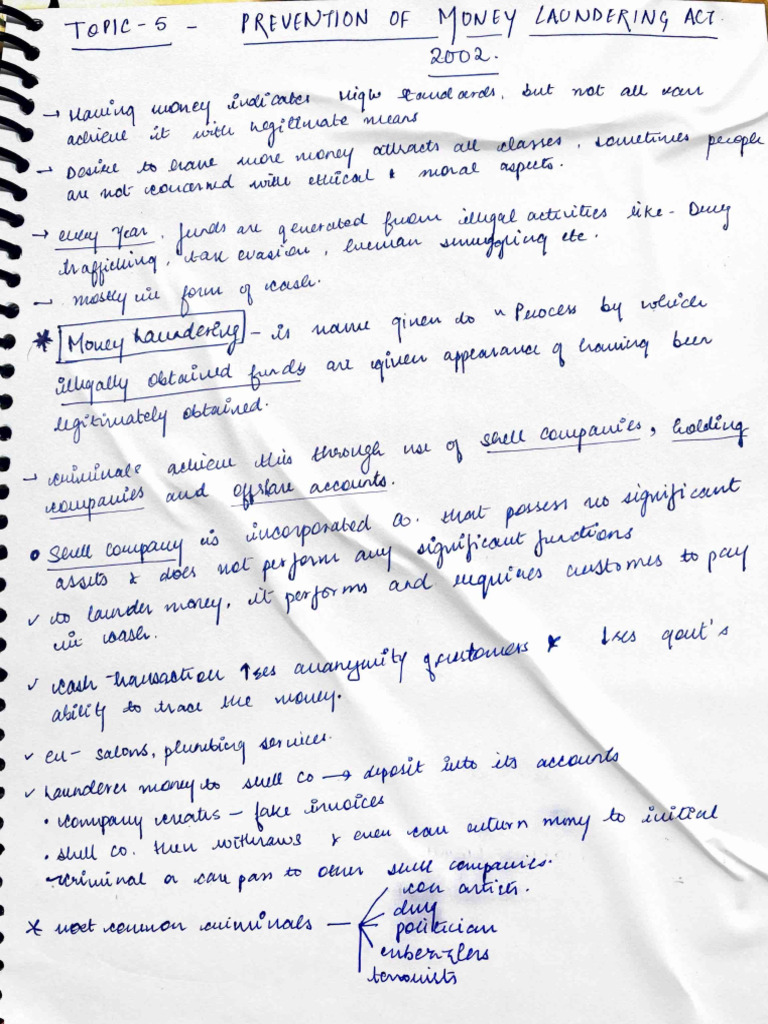 TOPIC-5 - PREVENTION OF MONEY LAUNDERING ACT.
2002.
→ Having money indicates High standards, but not all can
achieve it with legitimate means
→ Desire to have more money attracts all classes, sometimes people
are not concerned with ethical & moral aspects.
→ every year, funds are generated from illegal activities like - Drug
trafficking, tax evasion, human smuggling etc.
→ mostly in form of cash.
* Money Laundering - is name given to "Process by which
illegally obtained funds are given appearance of having been
legitimately obtained.
→ criminals achieve this through use of shell companies, holding
companies and offshore accounts.
• Shell company is incorporated co. that possess no significant
assets & does not perform any significant functions
✓ to launder money, it performs and requires customers to pay
in cash.
✓ cash-transaction ↑ses ananymity of customers & ↓ses govt's
ability to trace the money.
✓ ex- salons, plumbing services.
✓ Launderer money to shell co → deposit into its accounts
• company creates - fake invoices
• shell co. then withdraws & even can return money to initial
criminal or can pass to other shell companies.
* most common criminals - con artists.
drug
politician
embezzlers
terrorists